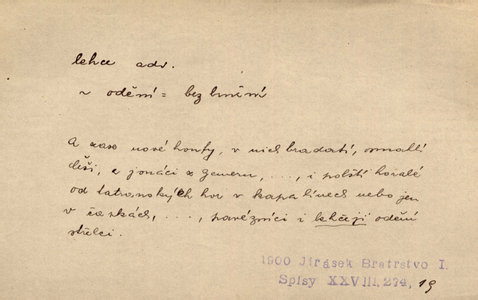 lehce adv.
~ odění = bez brnění
A zase nové houfy, v nich bradatí, osmahlí
Četí, a jonáci z Gemeru, ..., i polští horalé
od tatranských hor v kapalínech nebo jen
v čapkách, ..., pavézníci i lehčeji odění
střelci.
1900 Jirásek Bratrstvo I.
Spisy XXVIII. 274, 19